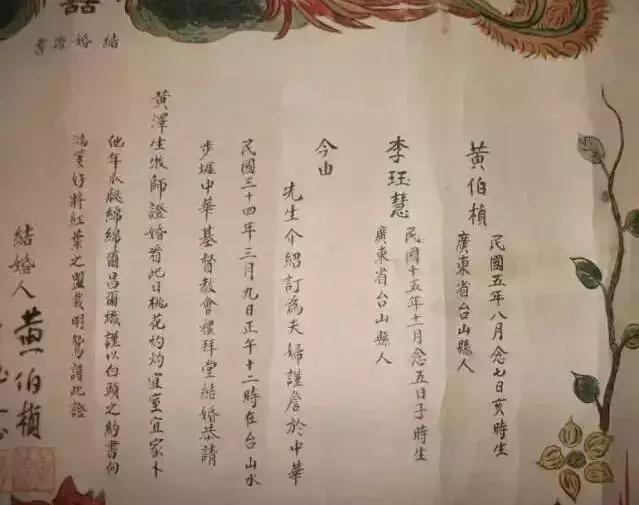 囍
結婚證書
黃伯楨
民國五年八月念七日亥時生
廣東省台山縣人
李珏慧
民國十五年十一月念五日子時生
廣東省台山縣人
今由
先生介紹訂為夫婦謹詹於中華
民國三十四年三月九日正午十二時在台山水
步墟中華基督教會禮拜堂結婚恭請
黃澤生牧師證婚看此日桃花灼灼宜室宜家卜
他年瓜瓞綿綿爾昌爾熾謹以白頭之約書向
鴻箋好將紅葉之盟載明鴛譜此證
結婚人 黃伯楨